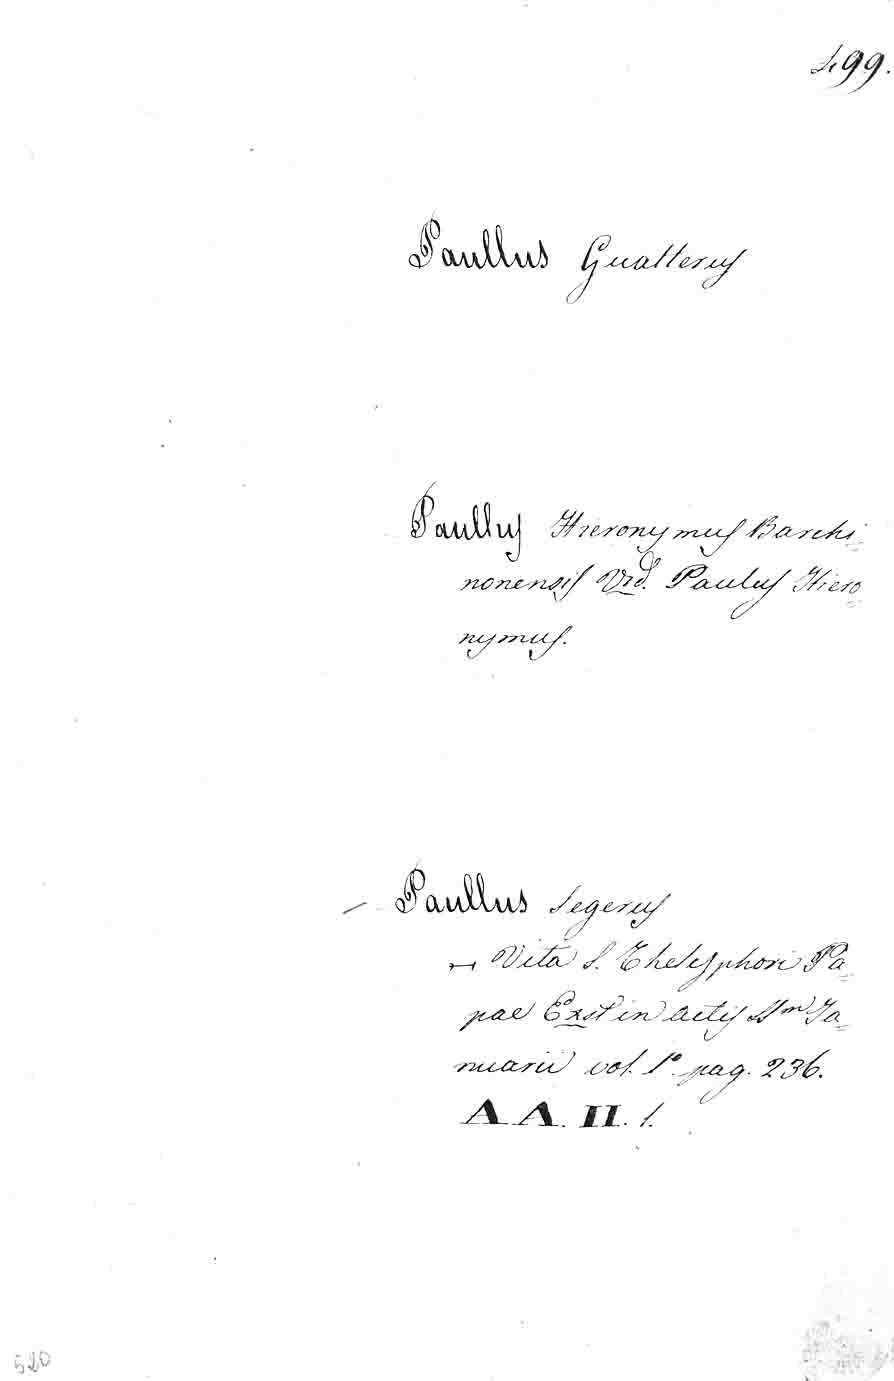 499.
Paullus Gualterus
Paullus Hieronymus Barchi=
nonensis Vid. Paulus Hiero=
nymus.
Paullus Segerus
Vita S. Thelesphori Pa=
pae Exst in Actis SSm Ja=
nuarii vol. 1º. pag. 236.
A A. II. 1.
520